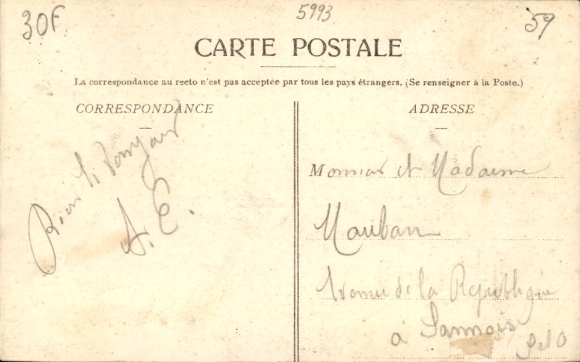 30F
5993
59
CARTE POSTALE
La correspondance au recto n'est pas acceptée par tous les pays étrangers. (Se renseigner à la Poste.)
CORRESPONDANCE
Bien le bonjour
A. E.
ADRESSE
Monsieur et Madame
Mauban
Avenue de la République
à Sannois
S et O